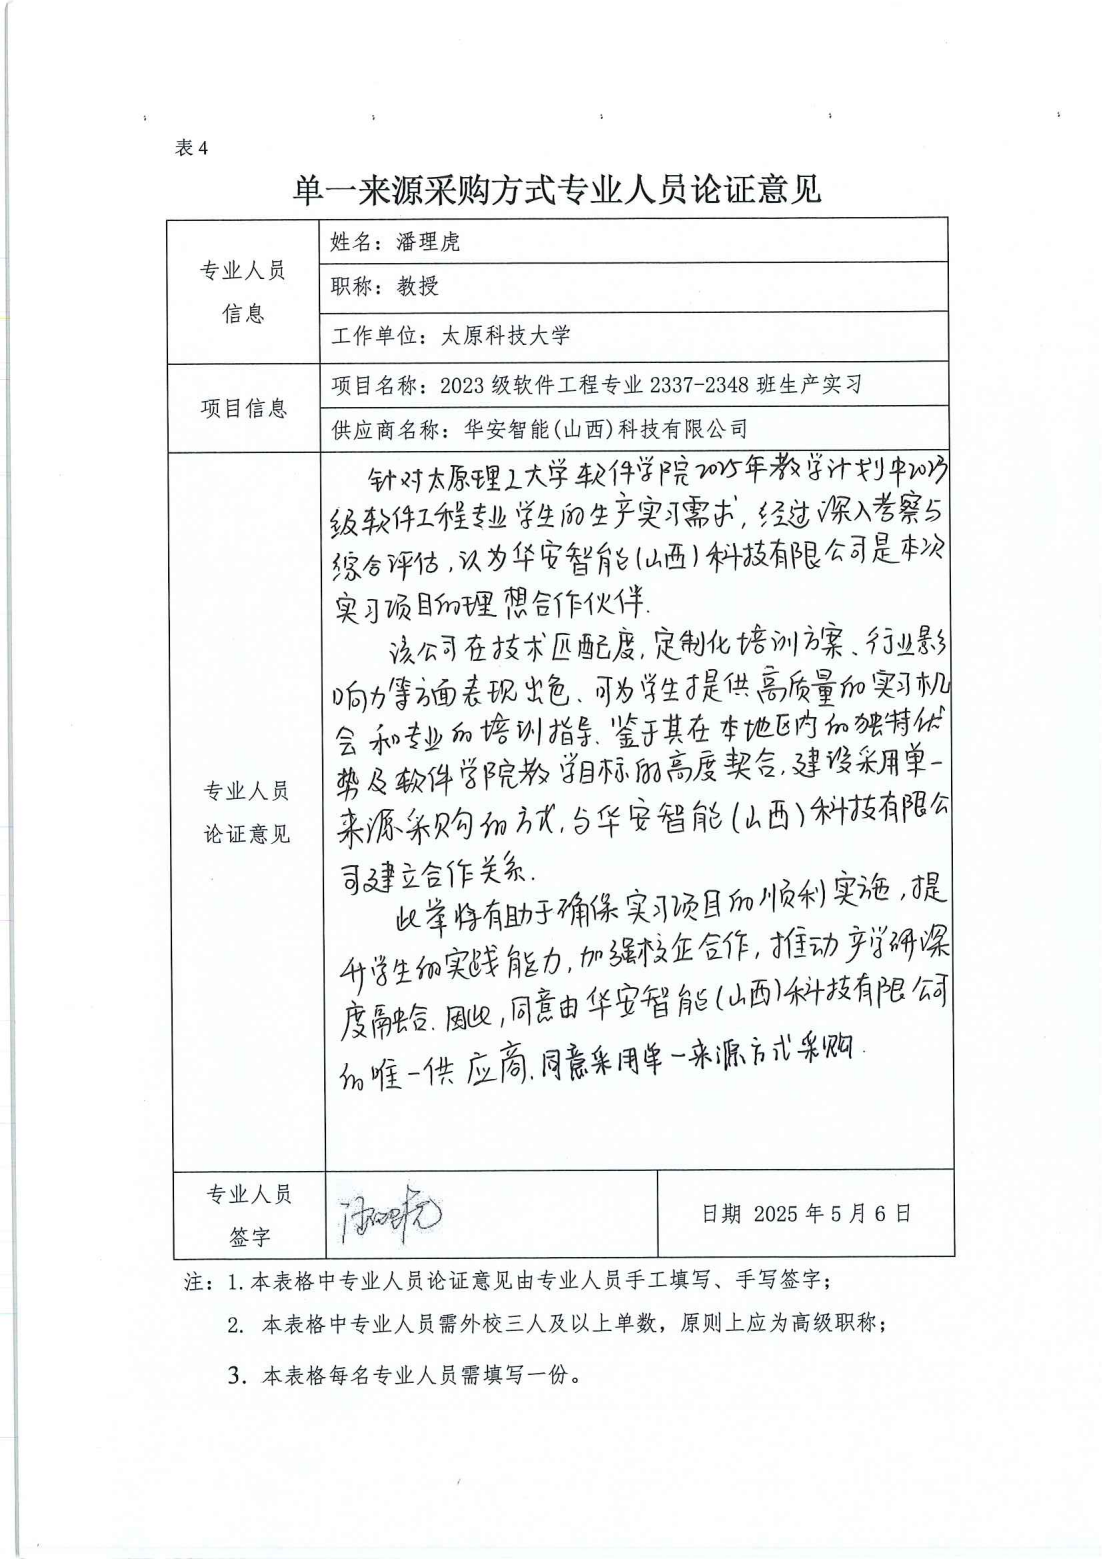 表4
单一来源采购方式专业人员论证意见
专业人员
信息
姓名：潘理虎
职称：教授
工作单位：太原科技大学
项目信息
项目名称：2023 级软件工程专业 2337-2348 班生产实习
供应商名称：华安智能(山西)科技有限公司
专业人员
论证意见
针对太原理工大学软件学院2025年教学计划中2023
级软件工程专业学生的生产实习需求，经过深入考察与
综合评估，认为华安智能(山西)科技有限公司是本次
实习项目的理想合作伙伴.
该公司在技术匹配度,定制化培训方案、行业影
响力等方面表现出色、可为学生提供高质量的实习机
会和专业的培训指导.鉴于其在本地区内的独特优
势及软件学院教学目标的高度契合,建设采用单一
来源采购的方式,与华安智能(山西)科技有限公
司建立合作关系.
此举将有助于确保实习项目的顺利实施,提
升学生的实践能力,加强校企合作,推动产学研深
度融合.因此,同意由华安智能(山西)科技有限公司
的唯一供应商.同意采用单一来源方式采购.
专业人员
签字
潘理虎
日期 2025 年 5 月 6 日
注：1.本表格中专业人员论证意见由专业人员手工填写、手写签字；
2. 本表格中专业人员需外校三人及以上单数，原则上应为高级职称；
3. 本表格每名专业人员需填写一份。